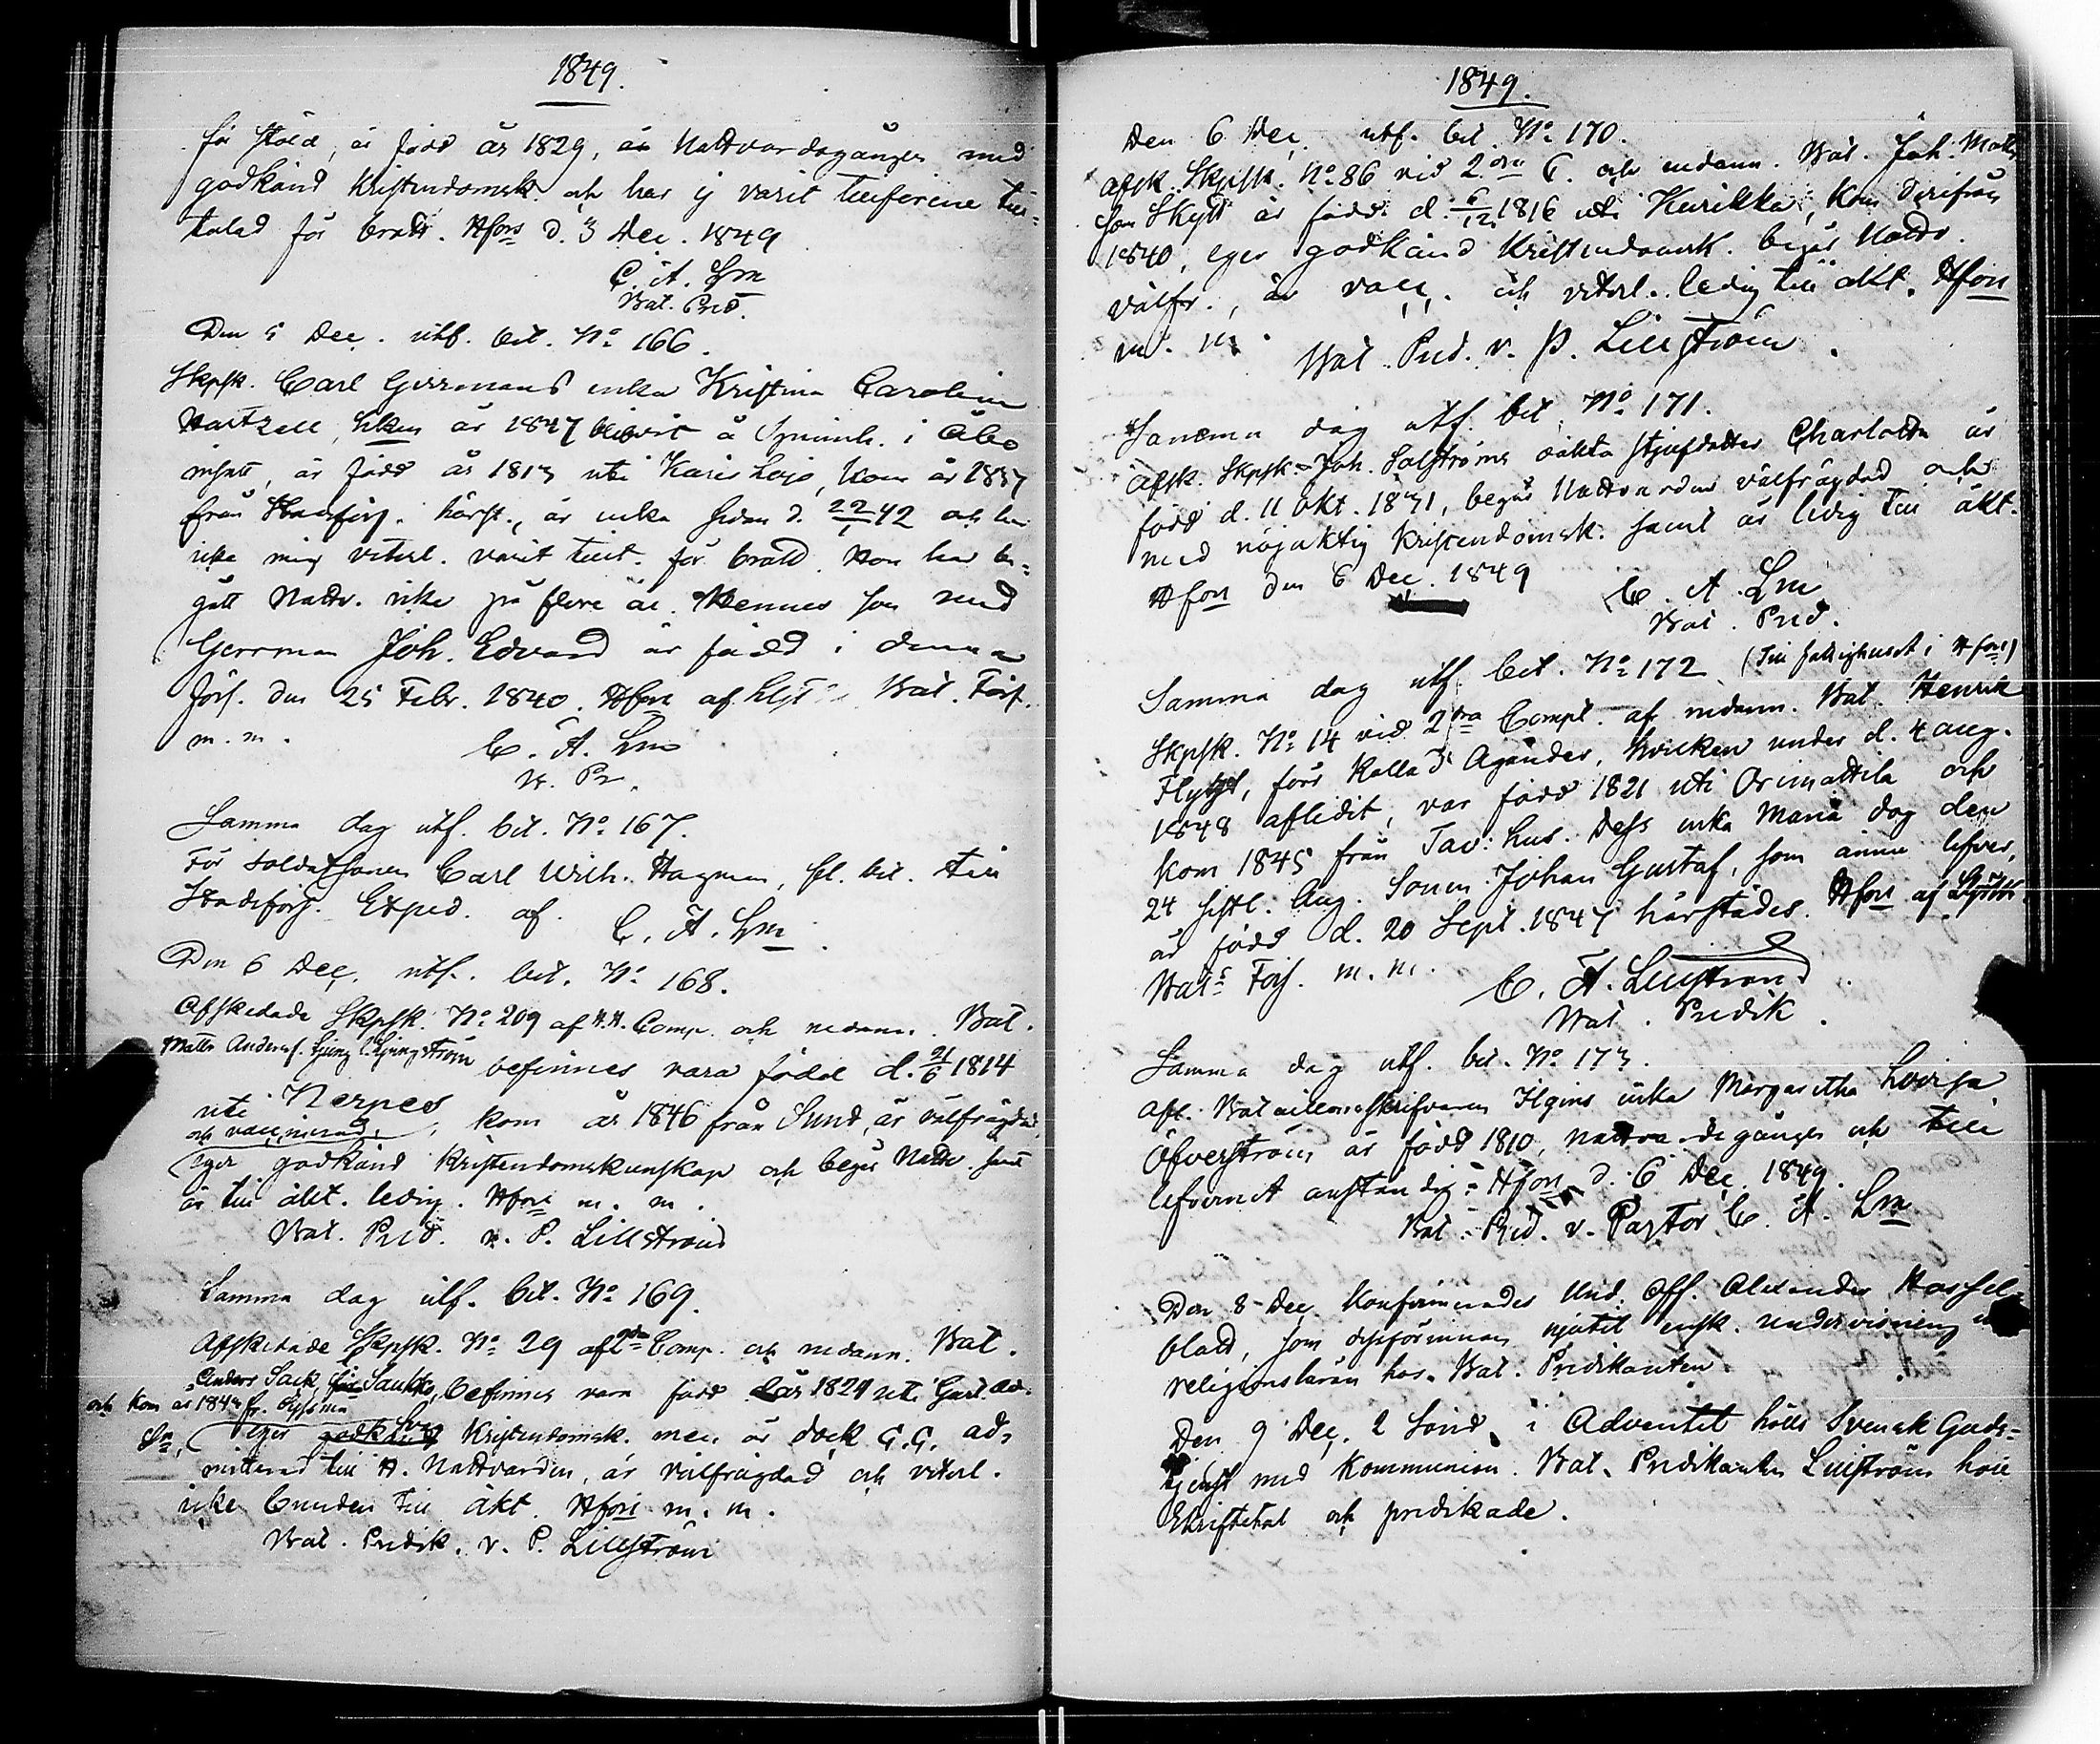 1849.
för stöld, är född år 1829, är Nattvardsgången med
godkänd Kristendomsk. och har ej varit tillförene till=
talad för brott. Hfors d. 3 Dec. 1849
C. A. Lm
Bat. Pred.
Den 5 Dec. utf. bet. No 166.
Skpsk. Carl Gerrmans enka Kristina Carolina
Hartzell, hken år 1847 blivit å Spinnh. i Åbo
insatt, är född år 1813 uti Karis Lojo, kom år 1837
från härst., är enka sedan d. 22/1 42 och har
icke mig veterl. varit tillt. för brott. Hon har be=
gått Nattv. icke på flere år. Hennes son med
Gerrman Joh. Edvard är född i denna
förs. den 25 Febr. 1840. Hfors af Bat. Förs.
m. m.
C. A. Lm
B. Pr.
Samma dag utf. bet. No 167.
För Soldatsonen Carl Wilh. Hagman, fl. bet. till
Stadsförs. Exped. af C. A. Lm
Den 6 Dec. utf. bet. No 168.
Afskedade Skpsk. No 209 af Comp. och nedann. Bat.
Matts Anderss. Ljung l. Ljungström befinnes vara född d. 21/6 1814
uti Nerpes, kom år 1846 från Sund, är välfrägdad
och vaccinerad,
eger godkänd Kristendomskunskap och begår Nattv. samt
är till äkt. ledig. Hfors m. m.
Bat. Pred. v. P. Lillström
Samma dag utf. bet. No 169.
Afskedade Skpsk. No 29 af 2dra Comp. och nedann. Bat.
Anders Sack, Saukko, befinnes vara född år 1821 uti
och kom år 1844 fr. Sysmä
Lm eger godkänd svag Kristendomsk. men är dock G. G. ad=
mitterad till H. Nattvarden, är välfrägdad och veterl.
icke bunden till äkt. Hfors m. m.
Bat. Predik. v. P. Lillström
1849.
Den 6 Dec. utf. bet. No 170.
Afsk. Skpsk. No 86 vid 2dra C. och nedann. Bat. Joh. Matts
son Skytt är född d. 6/12 1816 uti Kurikka, kom derifrån
1840, eger godkänd Kristendomsk. begår Nattv.
välfr., är vacc. och veterl. ledig till äkt. Hfors
m. m.
Bat. Pred. v. P. Lillström.
Samma dag utf. bet. No 171.
Afsk. Skpsk. Joh. Salströms oäkta stjufdotter Charlotta är
född d. 11 Okt. 1831, begår Nattvarden välfrägdad och
med nöjaktig Kristendomsk. samt är ledig till äkt.
Hfors den 6 Dec. 1849
C. A. Lm
Bat. Pred.
Samma dag utf. bet. No 172 (Till fattighuset i Hfors)
Skpsk. No 14 vid 2dra Comp. af nedann. Bat. Henrik
Flygt, förr kallad Agander, hvilken under d. 4 Aug.
1848 aflidit, var född 1821 uti Orimattila och
kom 1845 från Tav:hus. Dess enka Maria dog den
24 sistl. Aug. Sonen Johan Gustaf, som ännu lefver,
är född d. 20 Sept. 1847 härstädes. Hfors af
Bats Förs. m. m.
C. A. Lillström
Bat. Predik.
Samma dag utf. bet. No 173.
Afl. Bataillonsskrifvaren Ilgins enka Margaretha Lovisa
Öfverström är född 1810, nattvardsgången och till
lefvernet anständig. Hfors d. 6 Dec. 1849.
Bat. Pred. v. Pastor C. A. Lm
Den 8 Dec. Konfirmerades Und. Off. Alexander Hassel=
blad, som dessförinnan njutit ensk. undervisning i
religionsläran hos Bat. Predikanten.
Den 9 Dec. 2 Sönd. i Adventet hölls Svensk Guds=
tjenst med kommunion. Bat. Predikanten Lillström höll
Skriftetal och predikade.